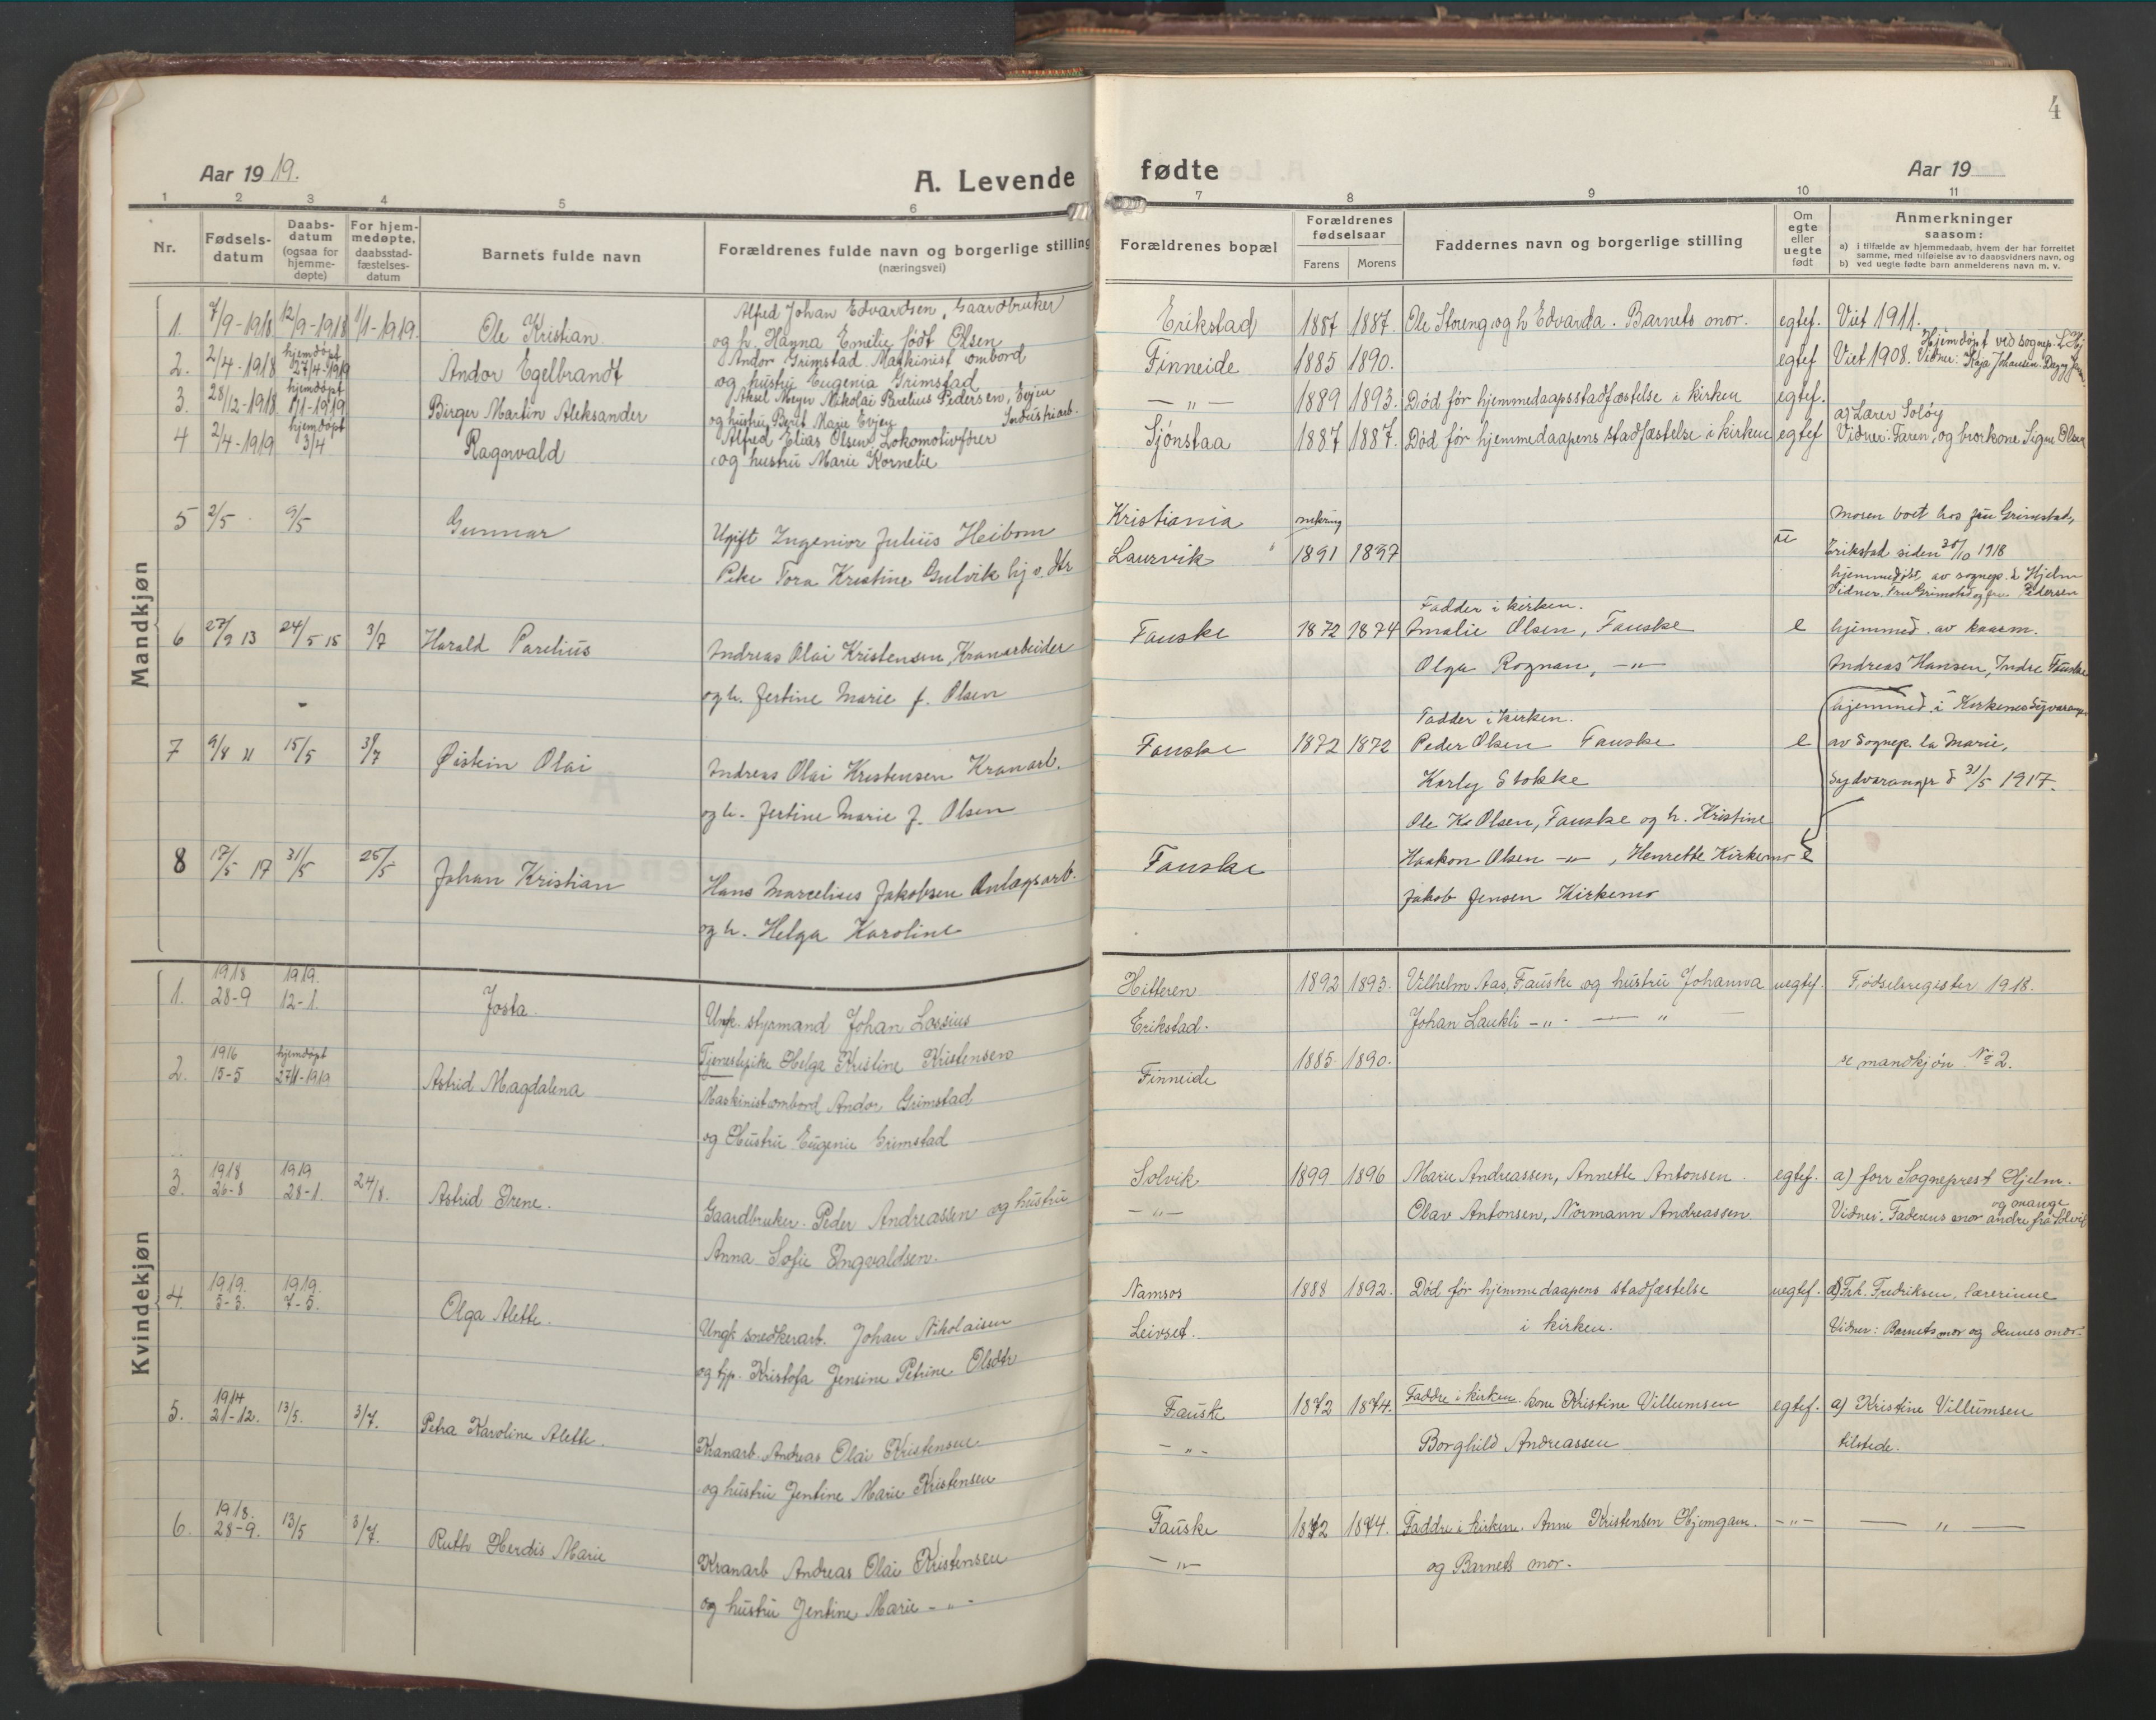 4
Aar 1919.
A. Levende fødte
Aar 19
1 2 3 4 5 6 7 8 9 10 11
Nr.
Fødsels-
datum
Daabs-
datum
(ogsaa for
hjemme-
døpte)
For hjem-
medøpte,
daabsstad-
fæstelses-
datum
Barnets fulde navn
Forældrenes fulde navn og borgerlige stilling
(næringsvei)
Forældrenes bopæl
Forældrenes
fødselsaar
Farens Morens
Faddernes navn og borgerlige stilling
Om
egte
eller
uegte
født
Anmerkninger
saasom:
a) i tilfælde av hjemmedaab, hvem der har forrettet
samme, med tilføielse av to daabsvidners navn, og
b) ved uegte fødte barn anmelderens navn m. v.
Mandkjøn
1. 7/9-1918 12/9-1918 1/1-1919. Ole Kristian
Alfred Johan Edvardsen, Gaardbruker
og h. Hanna Emelie født Olsen
Erikstad 1887 1887. Ole Storeng og h Edvarda. Barnets mor. egtef. Viet 1911.
2. 2/4-1918 hjemdøpt 27/4-1919 Andor Egelbrandt
Andor Grimstad Maskinist ombord
og hustru Eugenia Grimstad
Finneide 1885 1890. egtef Viet 1908.
Hjemdøpt ved sognep.
Vidner: Kaja Johansen.
3. 28/12-1918 hjemdøpt 1/1-1919 Birger Martin Aleksander
Aksel Meyer Nikolai Parelius Pedersen, Evjen
og hustru Berit Marie Evjen Industriarb.
— " — 1889 1893. Død før hjemmedaapsstadfæstelse i kirken egtef.
4 2/4-1919 hjemdøpt 3/4 Ragnvald
Alfred Elias Olsen Lokomotivfører
og hustru Marie Kornelie
Sjönstaa 1887 1887. Død før hjemmedaapens stadfæstelse i kirken egtef
a) Lærer Soløy
Vidner: Faren, og brorkone Signe Olsen
5 2/5 9/5 Gunnar
Ugift Ingeniør Julius Heibom
Pike Tora Kristine Gulvik hj v. dtr
Kristiania omkring
Laurvik 1891 1897 u
Moren boet hos fru Grimstad,
Erikstad siden 20/10 1918
hjemmedøbt av sognep. L Hjelm
Vidner. Fru Grimstad og fru Pedersen
6 27/9 13 24/5 18 3/7 Harald Parelius
Andreas Olai Kristensen, Kranarbeider
og h. Jertine Marie f. Olsen
Fauske 1872 1874
Fadder i kirken.
Amalie Olsen, Fauske
Olga Rognan, — " —
e hjemmed. av kaarm.
Andreas Hansen, Indre Fauske
7 9/8 11 15/5 3/7 Øistein Olai
Andreas Olai Kristensen Kranarb.
og h. Jertine Marie f. Olsen
Fauske 1872 1872
Fadder i kirken.
Peder Olsen Fauske
Karly Stokke
e
hjemmed. i Kirkenes Sydvaranger
av Sognep. la Marie,
Sydvaranger d 31/5 1917.
8 17/5 17 31/5 25/5 Johan Kristian
Hans Marcelius Jakobsen Anlægsarb.
og h. Helga Karoline
Fauske
Ole Kr Olsen, Fauske og h. Kristine
Haakon Olsen — " — , Henrette Kirkemo e
Jakob Jensen Kirkemo
Kvindekjøn
1. 1918 28-9 1919. 12-1. Josta
Unk. styrmand Johan Lossius
Tjenestepike Helga Kristine Kristensen
Hitteren 1892 1893.
Erikstad.
Vilhelm Aas, Fauske og hustru Johanna uegtef. Fødselsregister 1918.
Johan Laukli — " — "
2. 1916 15-5 hjemdøpt 27/4-1919 Astrid Magdalena
Maskinist ombord Andor Grimstad
og Hustru Eugenie Grimstad
Finneide 1885 1890. se mandkjøn No 2.
3. 1918 26-8 1919 28-1. 24/8. Astrid Irene.
Gaardbruker. Peder Andreassen og hustru
Anna Sofie Ingvaldsen.
Solvik 1899 1896 Marie Andreassen, Annette Antonsen. egtef. a) forr Sogneprest Hjelm.
— " — Olav Antonsen, Normann Andreassen.
Vidner: Faderens mor og mange andre fra Solvik
4. 1919. 5-3. 1919. 7-5. Olga Alette.
Ungk snedkerarb. Johan Nikolaisen
og tjp. Kristofa Jensine Petrine Olsdtr
Namsos 1888 1892. Død før hjemmedaapens stadfæstelse uegtef. a) Frk. Fredriksen, lærerinne
Leivset. i kirken. Vidner: Barnets mor og dennes mor.
5. 1914 21-12. 13/5. 3/7. Petra Karoline Alette.
Kranarb. Andreas Olai Kristensen
og hustru Jentine Marie Kristensen
Fauske 1872 1874. Faddre i kirken. kone Kristine Villumsen egtef. a) Kristine Villumsen
— " — Borghild Andreassen tilstede.
6. 1918. 28-9. 13/5 3/7. Ruth Herdis Marie
Kranarb Andreas Olai Kristensen
og hustru Jentine Marie — " —
Fauske 1872 1874. Faddre i kirken. Anne Kristensen Hjemgam. — " — — " —
— " — og Barnets mor.